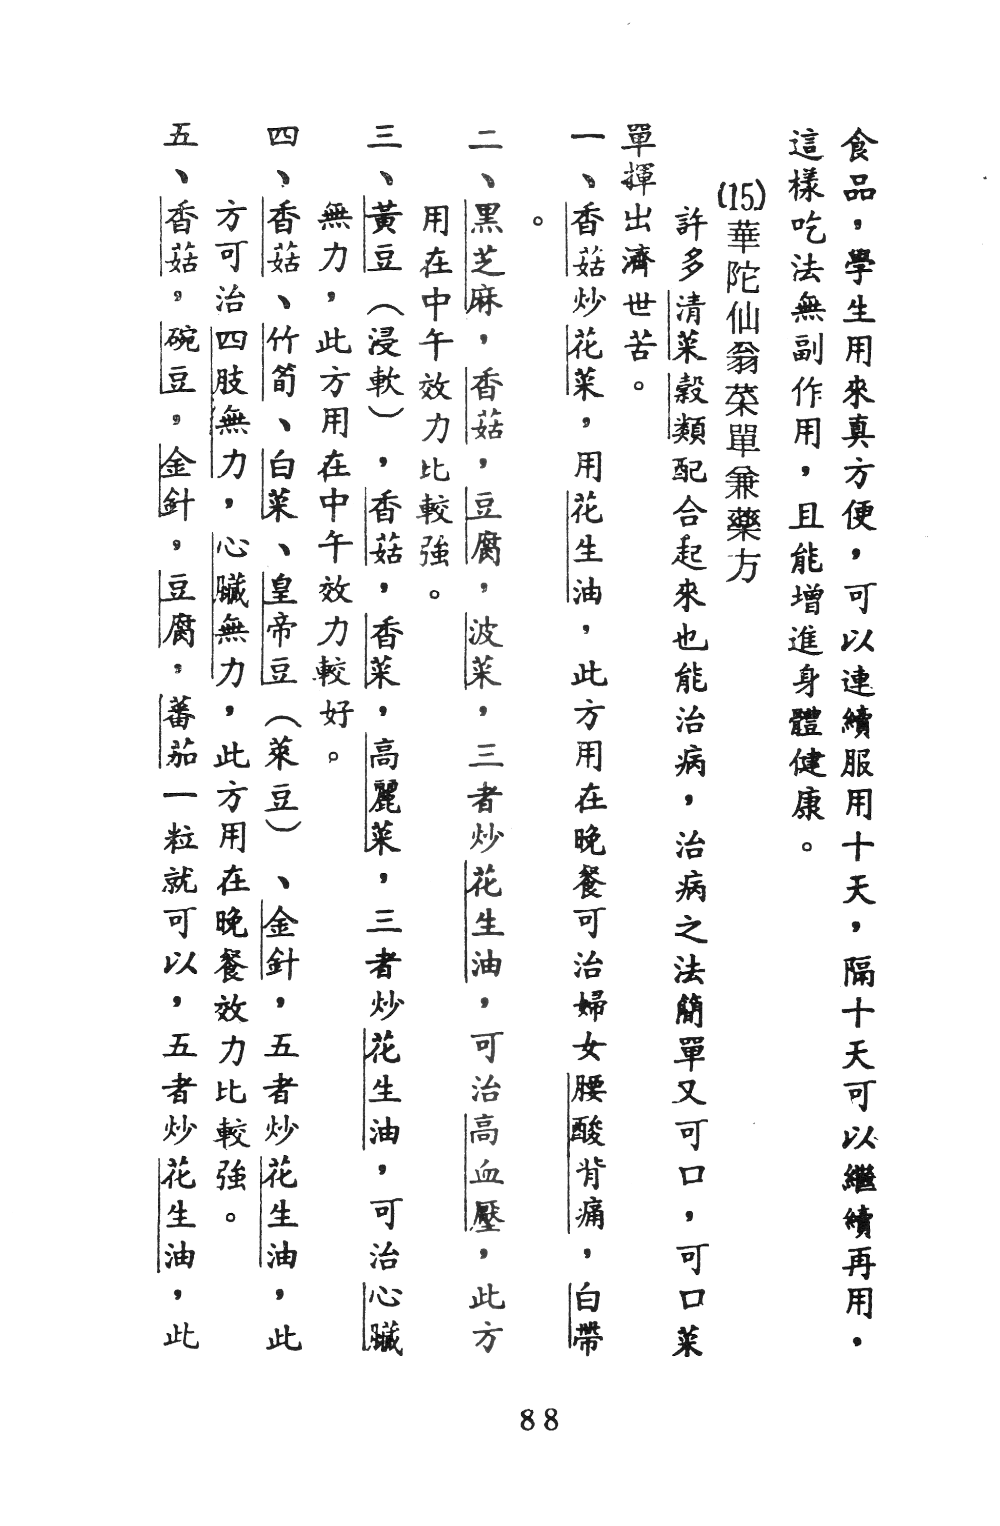 食品，學生用來真方便，可以連續服用十天，隔十天可以繼續再用，
這樣吃法無副作用，且能增進身體健康。
(15)華陀仙翁菜單兼藥方
許多清菜穀類配合起來也能治病，治病之法簡單又可口，可口菜
單揮出濟世苦。
一、香菇炒花菜，用花生油，此方用在晚餐可治婦女腰酸背痛，白帶
。
二、黑芝麻，香菇，豆腐，波菜，三者炒花生油，可治高血壓，此方
用在中午效力比較強。
三、黃豆（浸軟），香菇，香菜，高麗菜，三者炒花生油，可治心臟
無力，此方用在中午效力較好。
四、香菇、竹筍、白菜、皇帝豆（菜豆）、金針，五者炒花生油，此
方可治四肢無力，心臟無力，此方用在晚餐效力比較強。
五、香菇，碗豆，金針，豆腐，蕃茄一粒就可以，五者炒花生油，此
88